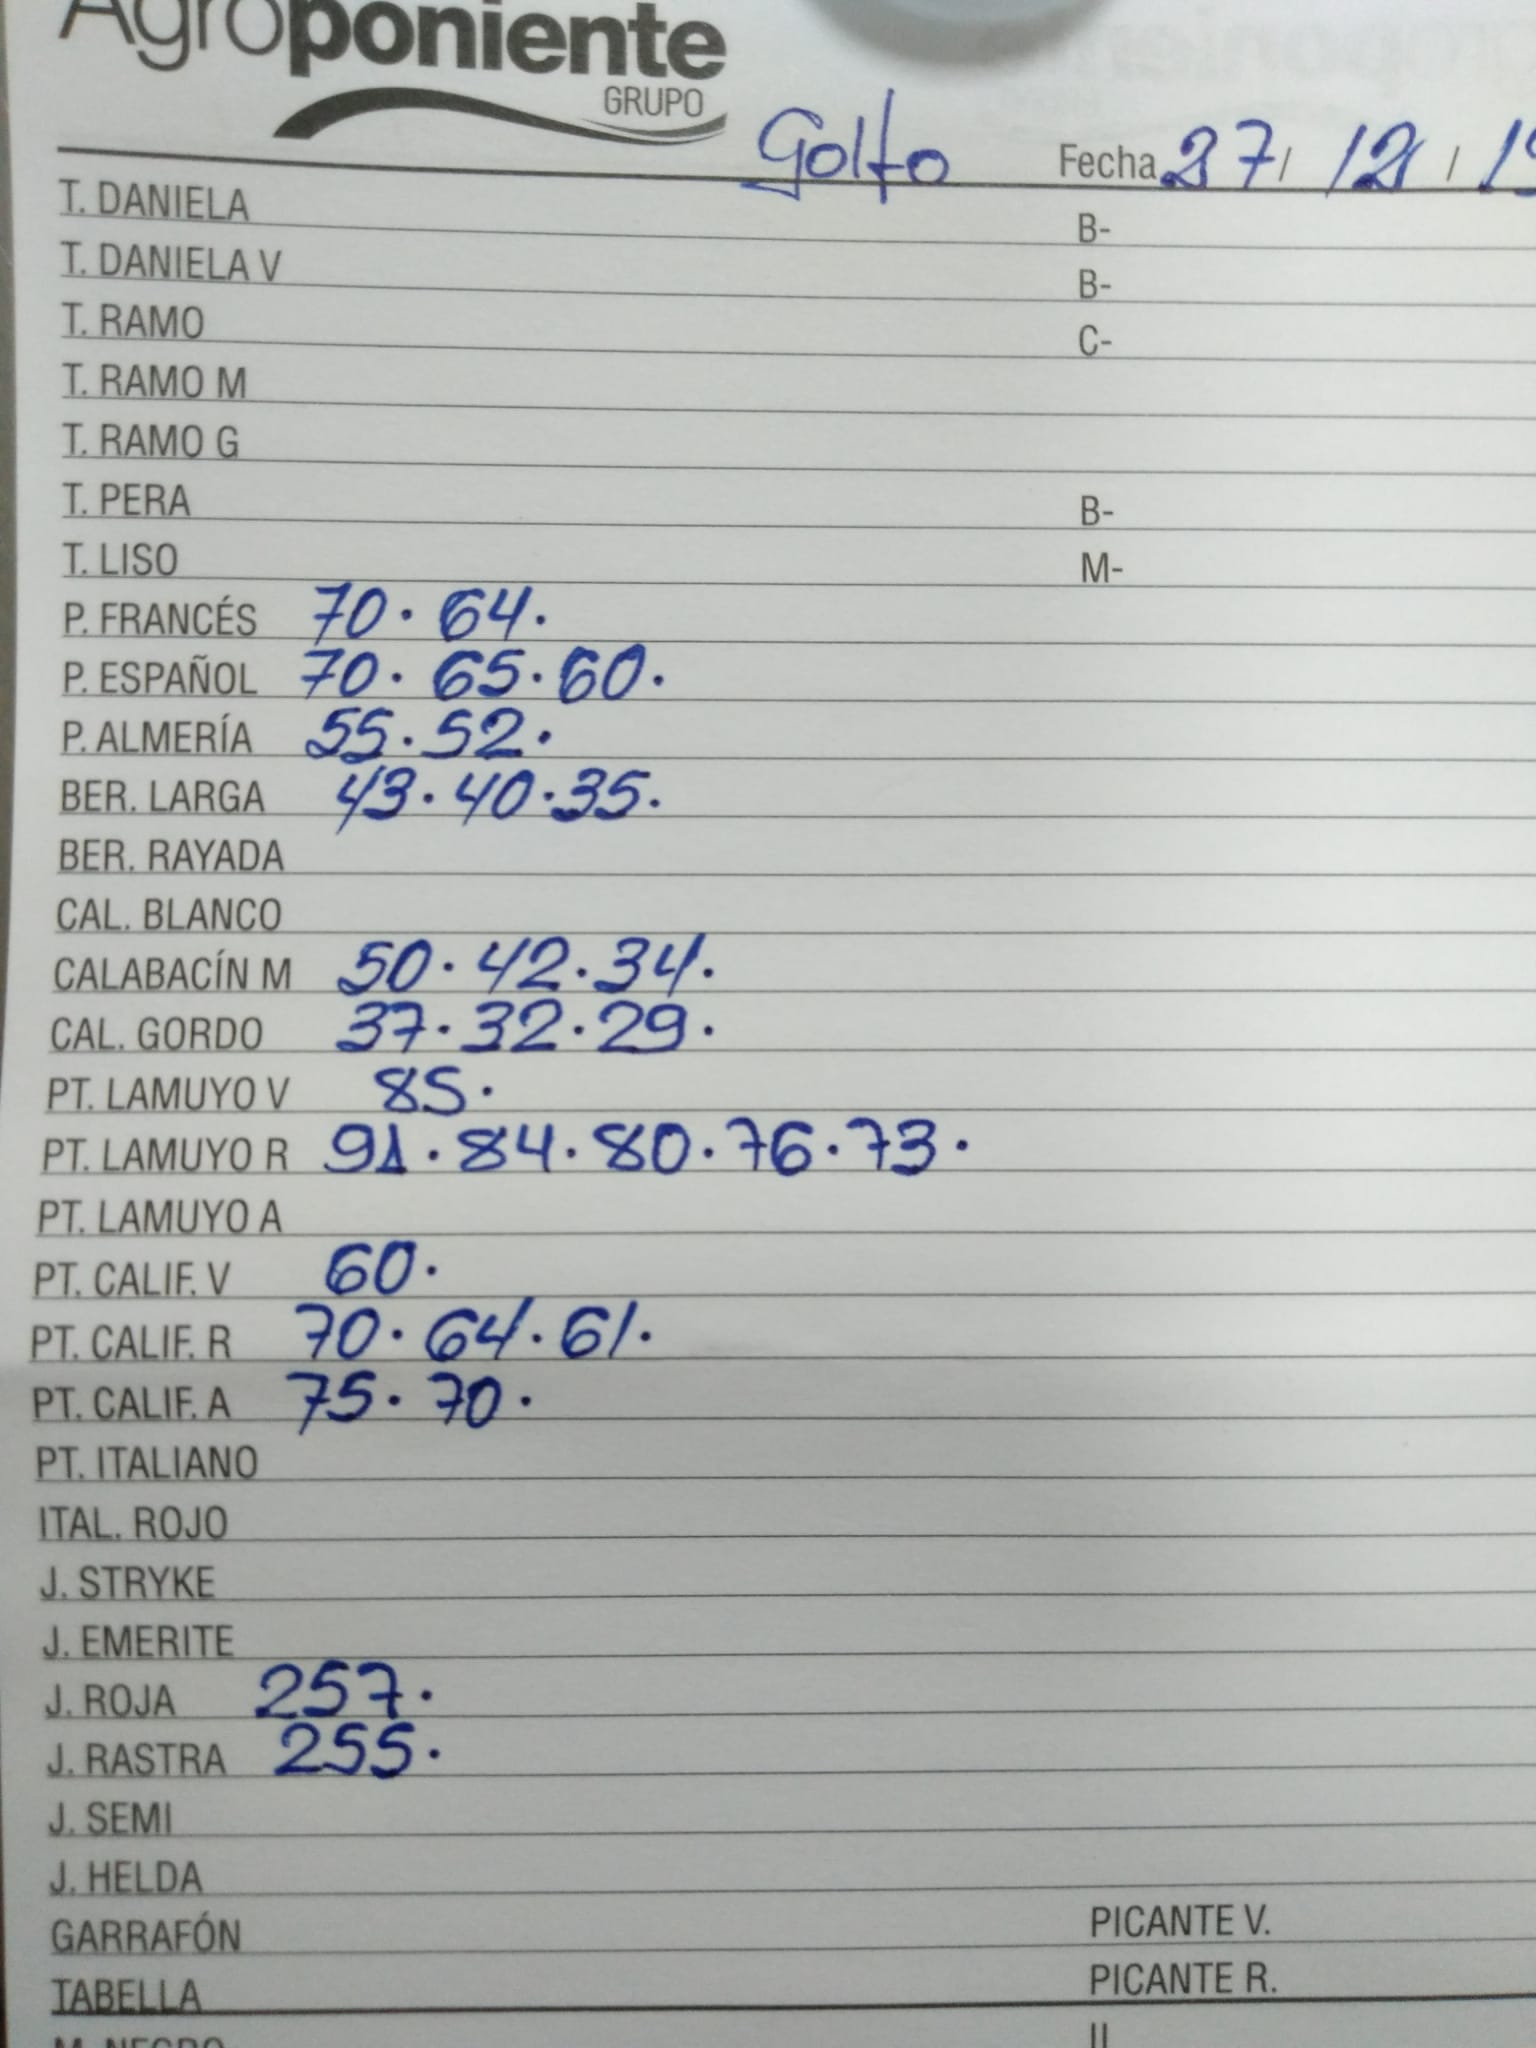 Agroponiente
GRUPO
Golfo Fecha 27 / 12 / 19
T. DANIELA B-
T. DANIELA V B-
T. RAMO C-
T. RAMO M
T. RAMO G
T. PERA B-
T. LISO M-
P. FRANCÉS 70. 64.
P. ESPAÑOL 70. 65. 60.
P. ALMERÍA 55. 52.
BER. LARGA 43. 40. 35.
BER. RAYADA
CAL. BLANCO
CALABACÍN M 50. 42. 34.
CAL. GORDO 37. 32. 29.
PT. LAMUYO V 85.
PT. LAMUYO R 91. 84. 80. 76. 73.
PT. LAMUYO A
PT. CALIF. V 60.
PT. CALIF. R 70. 64. 61.
PT. CALIF. A 75. 70.
PT. ITALIANO
ITAL. ROJO
J. STRYKE
J. EMERITE
J. ROJA 257.
J. RASTRA 255.
J. SEMI
J. HELDA
GARRAFÓN PICANTE V.
TABELLA PICANTE R.
M. NEGRO